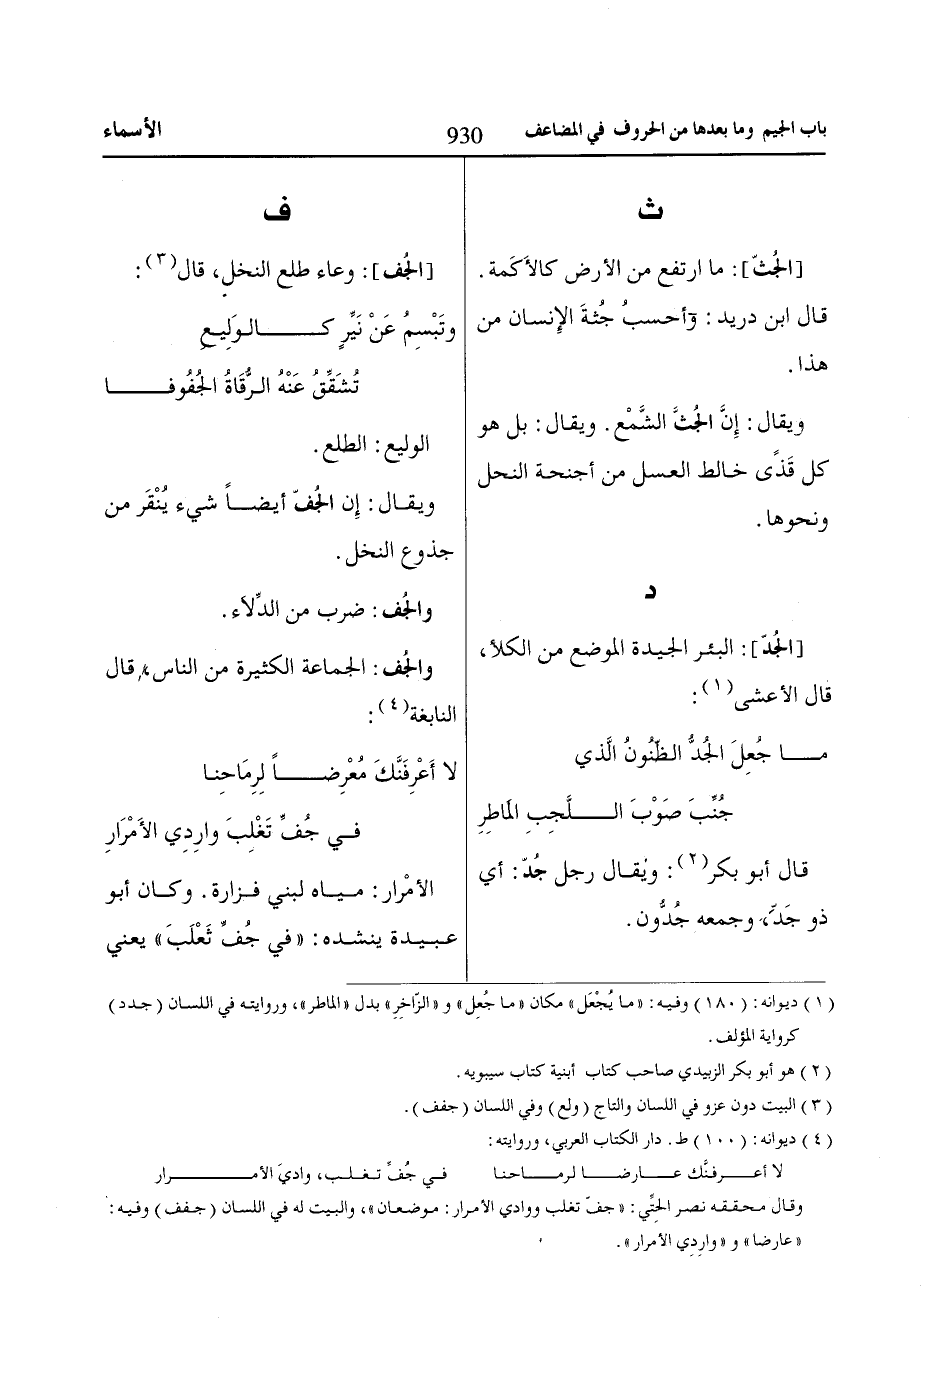 باب الجيم وما بعدها من الحروف في المضاعف
930
الأسماء
ث
[الجُثّ]: ما ارتفع من الأرض كالأكَمة.
قال ابن دريد: وأحسبُ جُثةَ الإنسان من
هذا.
ويقال: إنَّ الجُثَّ الشَّمْع. ويقال: بل هو
كل قَذًى خالط العسل من أجنحة النحل
ونحوها.
د
[الجُدّ]: البئر الجيدة الموضع من الكلأ،
قال الأعشى(١):
مـــا جُعِلَ الجُدُّ الظّنُونُ الَّذي
جُنِّبَ صَوْبَ الـــلَّجِبِ المَاطِرِ
قال أبو بكر(٢): ويُقال رجل جُدّ: أي
ذو جَدّ، وجمعه جُدُّون.
ف
[الجُف]: وعاء طلع النخل، قال(٣):
وتَبْسِمُ عَنْ نَيِّرٍ كـــالوَلِيعِ
تُشَقِّقُ عَنْهُ الرُّقَاةُ الجُفُوفـــا
الوليع: الطلع.
ويقال: إن الجُفّ أيضاً شيء يُنْقَر من
جذوع النخل.
والجُف: ضرب من الدِّلاَء.
والجُف: الجماعة الكثيرة من الناس، قال
النابغة(٤):
لا أَعْرِفَنَّكَ مُعْرِضـــاً لِرِمَاحِنا
فـي جُفِّ تَغْلِبَ وارِدِي الأَمْرَارِ
الأمْرار: مياه لبني فزارة. وكان أبو
عبيدة ينشده: «في جُفِّ ثَعْلَبَ» يعني
(١) ديوانه: (١٨٠) وفيه: «ما يُجْعَل» مكان «ما جُعِل» و «الزّاخِرِ» بدل «الماطر»، وروايته في اللسان (جدد)
كرواية المؤلف.
(٢) هو أبو بكر الزبيدي صاحب كتاب أبنية كتاب سيبويه.
(٣) البيت دون عزو في اللسان والتاج (ولع) وفي اللسان (جفف).
(٤) ديوانه: (١٠٠) ط. دار الكتاب العربي، وروايته:
لا أعـــرفنَّك عـــارضـــا لرمـــاحنا في جُفِّ تـغـلـب، وادي الأمـــرار
وقال محققه نصر الحتِّي: «جفّ تغلب ووادي الأمرار: موضعان»، والبيت له في اللسان (جفف) وفيه:
«عارضا» و «واردِي الأمرار».